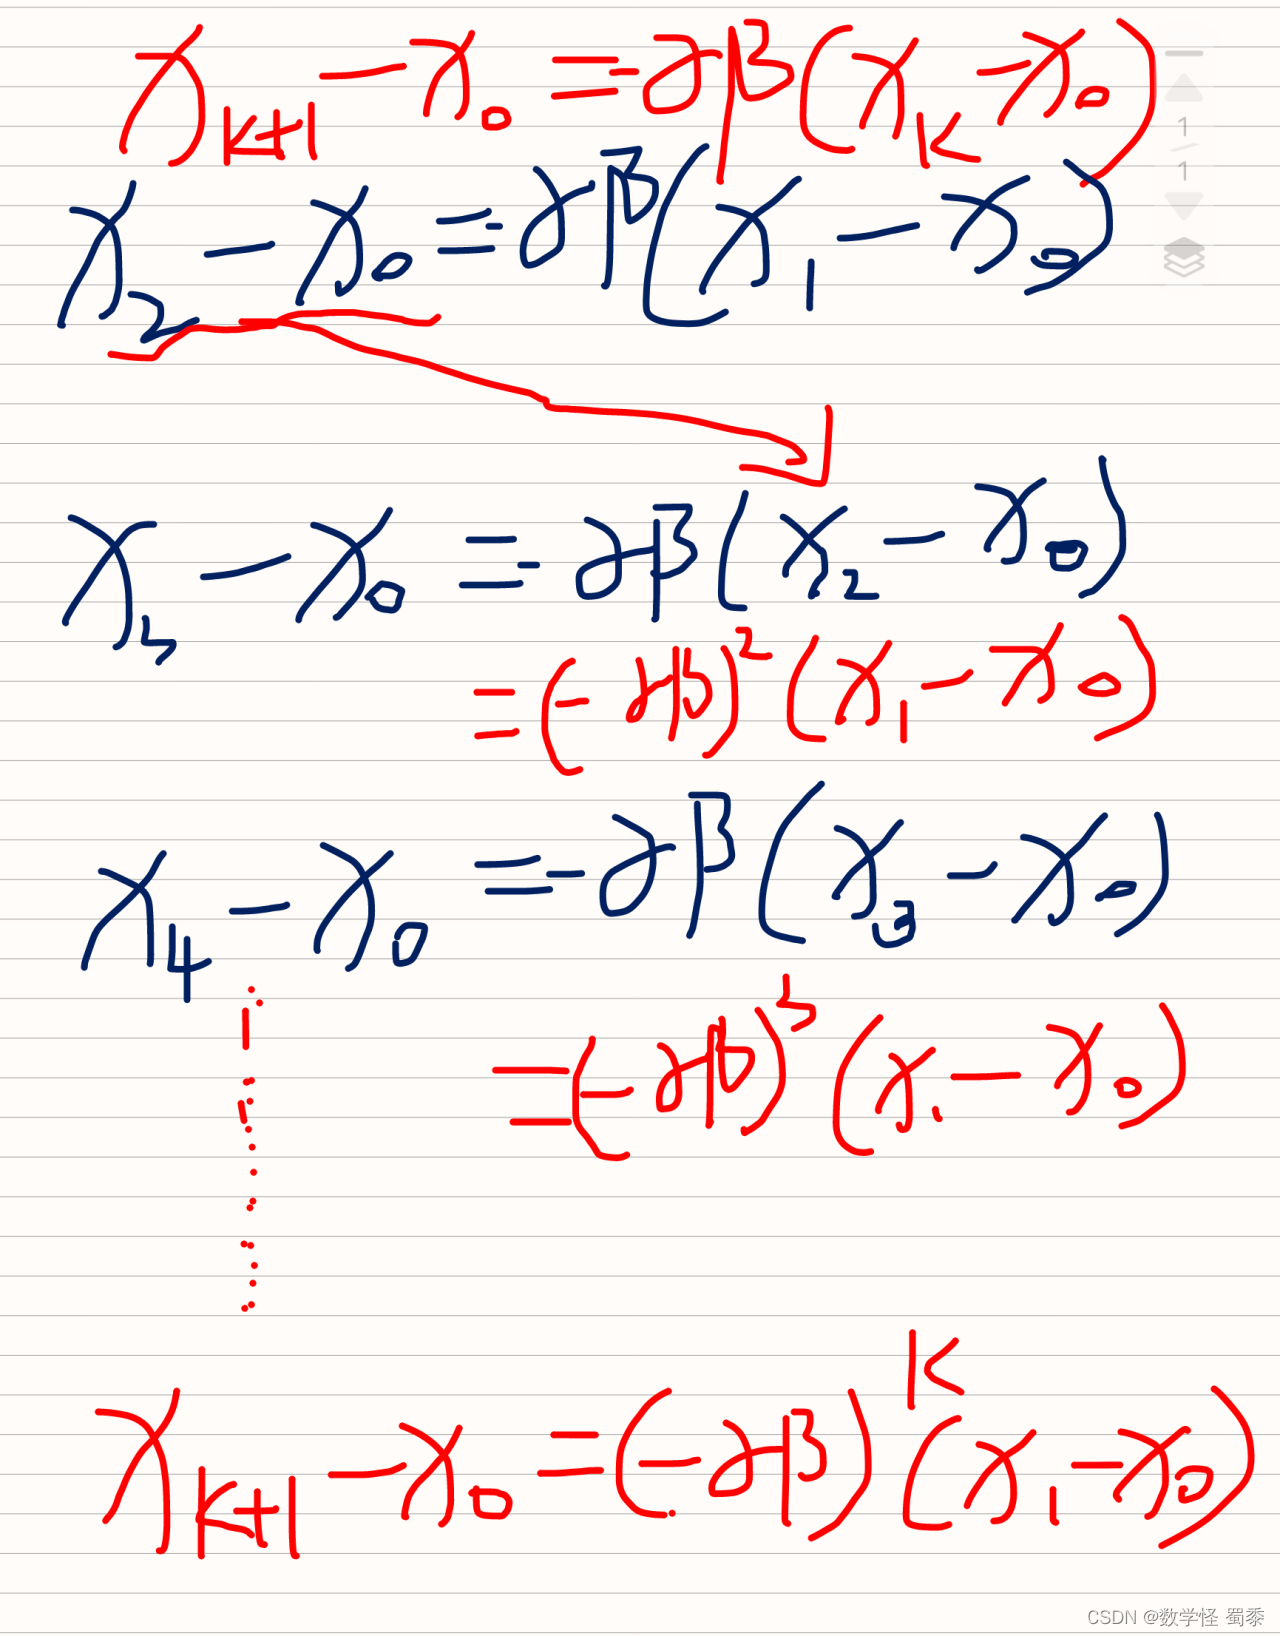 x_{k+1} - x_0 = -αβ(x_k - x_0)
x_2 - x_0 = -αβ(x_1 - x_0)
x_3 - x_0 = -αβ(x_2 - x_0)
= (-αβ)^2 (x_1 - x_0)
x_4 - x_0 = -αβ(x_3 - x_0)
= (-αβ)^3 (x_1 - x_0)
x_{k+1} - x_0 = (-αβ)^k (x_1 - x_0)
1
1
CSDN @数学怪 蜀黍